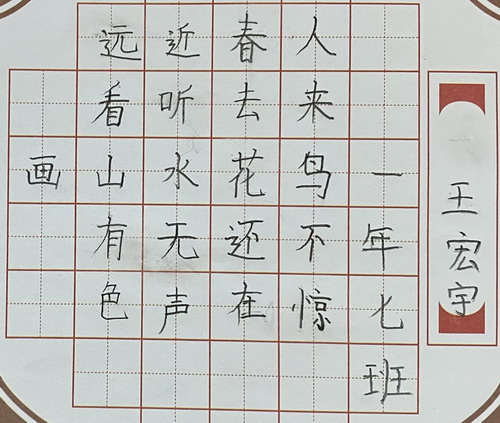 画
远看山有色
近听水无声
春去花还在
人来鸟不惊
一年七班
王宏宇